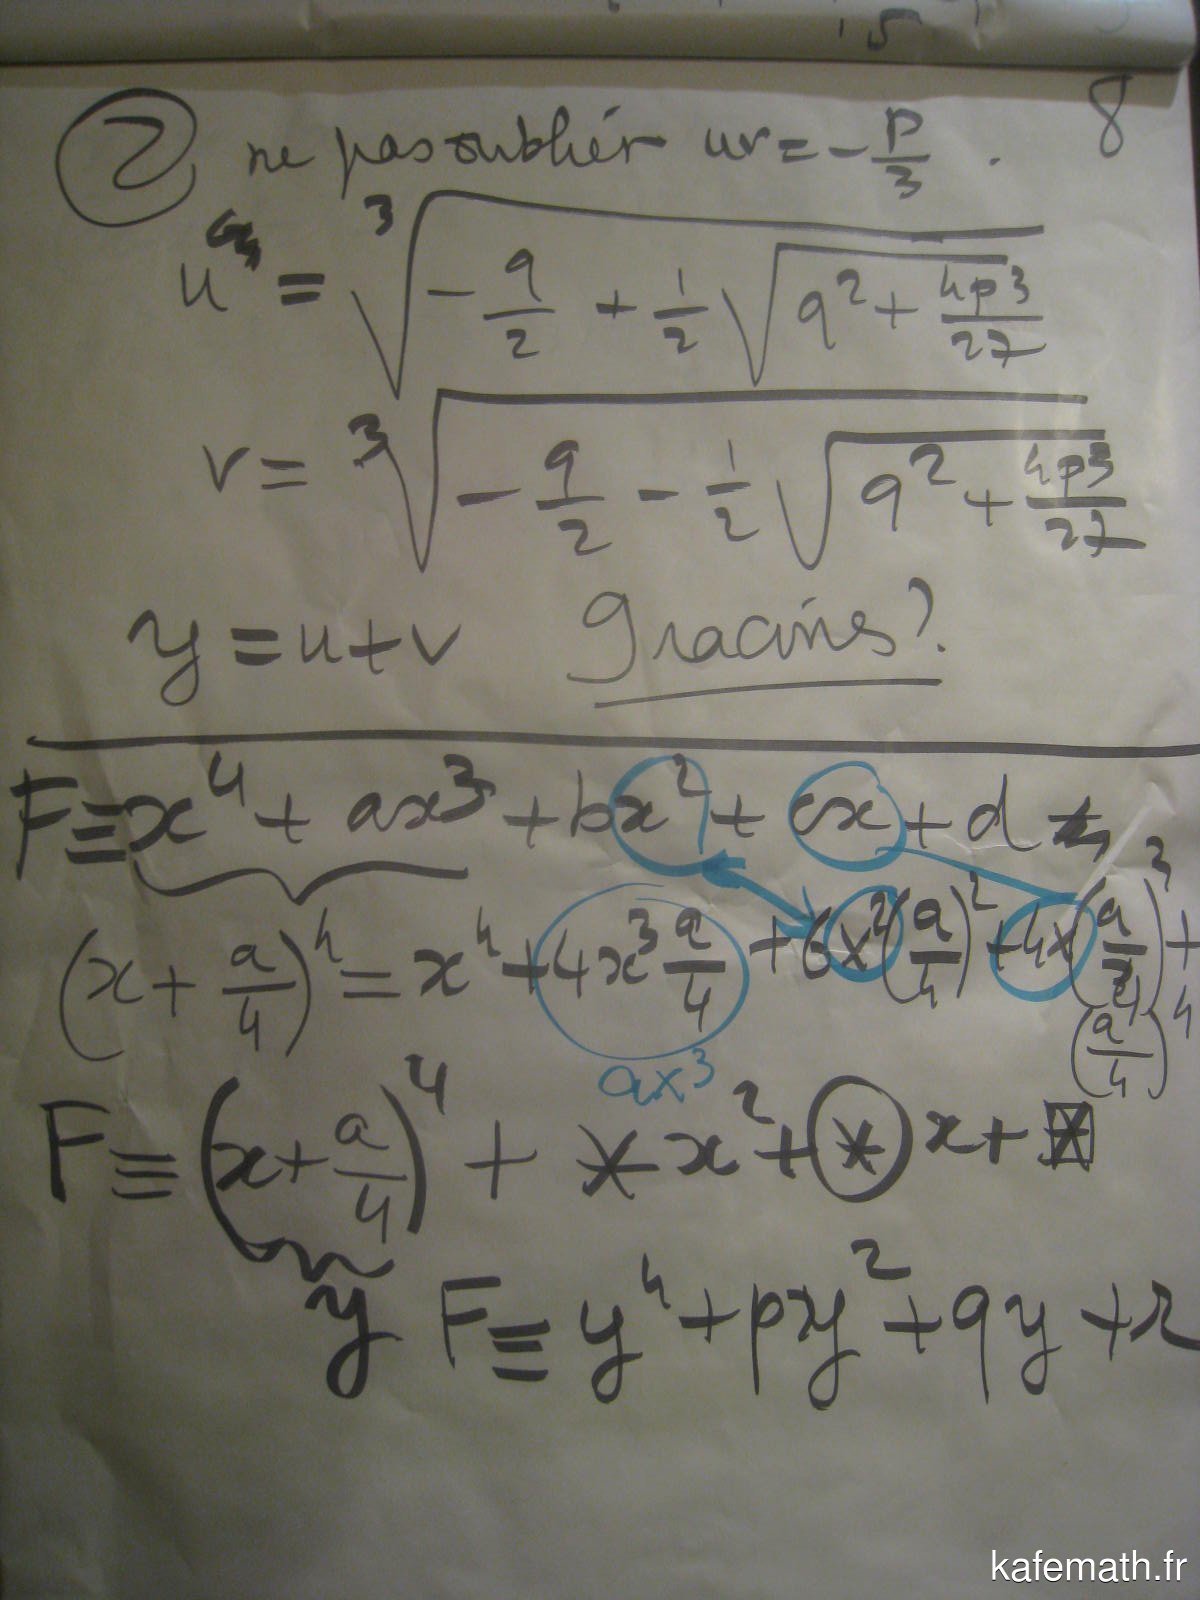 15
8
2 ne pas oublier uv = - p/3 .
u = ∛(- q/2 + 1/2 √(q² + 4p³/27))
v = ∛(- q/2 - 1/2 √(q² + 4p³/27))
y = u + v 9 racines ?
F ≡ x⁴ + ax³ + bx² + cx + d
(x + a/4)⁴ = x⁴ + 4x³ a/4 + 6x² (a/4)² + 4x (a/4)³ +
(a/4)⁴
ax³
F ≡ (x + a/4)⁴ + * x² + * x + *
y F ≡ y⁴ + py² + qy + r
kafemath.fr